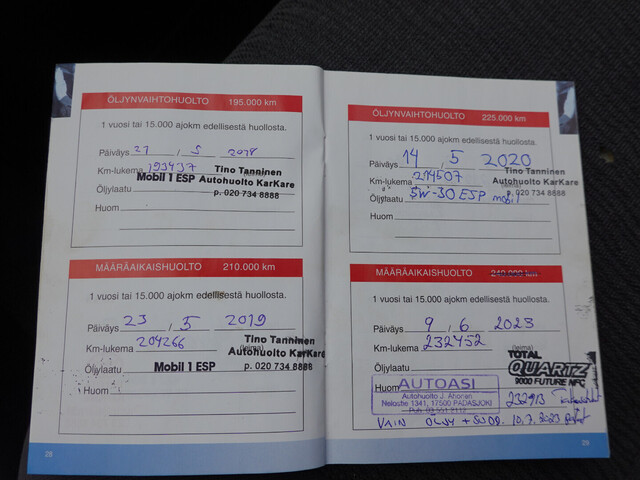 ÖLJYNVAIHTOHUOLTO 195.000 km
1 vuosi tai 15.000 ajokm edellisestä huollosta.
Päiväys 21 / 5 2018
Km-lukema 193437 (leima)
Tino Tanninen
Mobil 1 ESP Autohuolto KarKare
Öljylaatu p. 020 734 8888
Huom
MÄÄRÄAIKAISHUOLTO 210.000 km
1 vuosi tai 15.000 ajokm edellisestä huollosta.
Päiväys 23 / 5 2019
Tino Tanninen
Km-lukema 204266 (leima)
Autohuolto KarKare
Öljylaatu Mobil 1 ESP p. 020 734 8888
Huom
28
ÖLJYNVAIHTOHUOLTO 225.000 km
1 vuosi tai 15.000 ajokm edellisestä huollosta.
Päiväys 14 , 5 2020
Tino Tanninen
Km-lukema 214507 (leima)
Autohuolto KarKare
Öljylaatu 5W-30 ESP mobil p. 020 734 8888
Huom
MÄÄRÄAIKAISHUOLTO 240.000 km
1 vuosi tai 15.000 ajokm edellisestä huollosta.
Päiväys 9 , 6 2023
Km-lukema 232452 (leima)
TOTAL
Öljylaatu QUARTZ
9000 FUTURE NFC
Huom AUTOASI
Autohuolto J. Ahonen
Nelostie 1341, 17500 PADASJOKI
232913
VAIN ÖLJY + SUOD. 10.7.2023
29